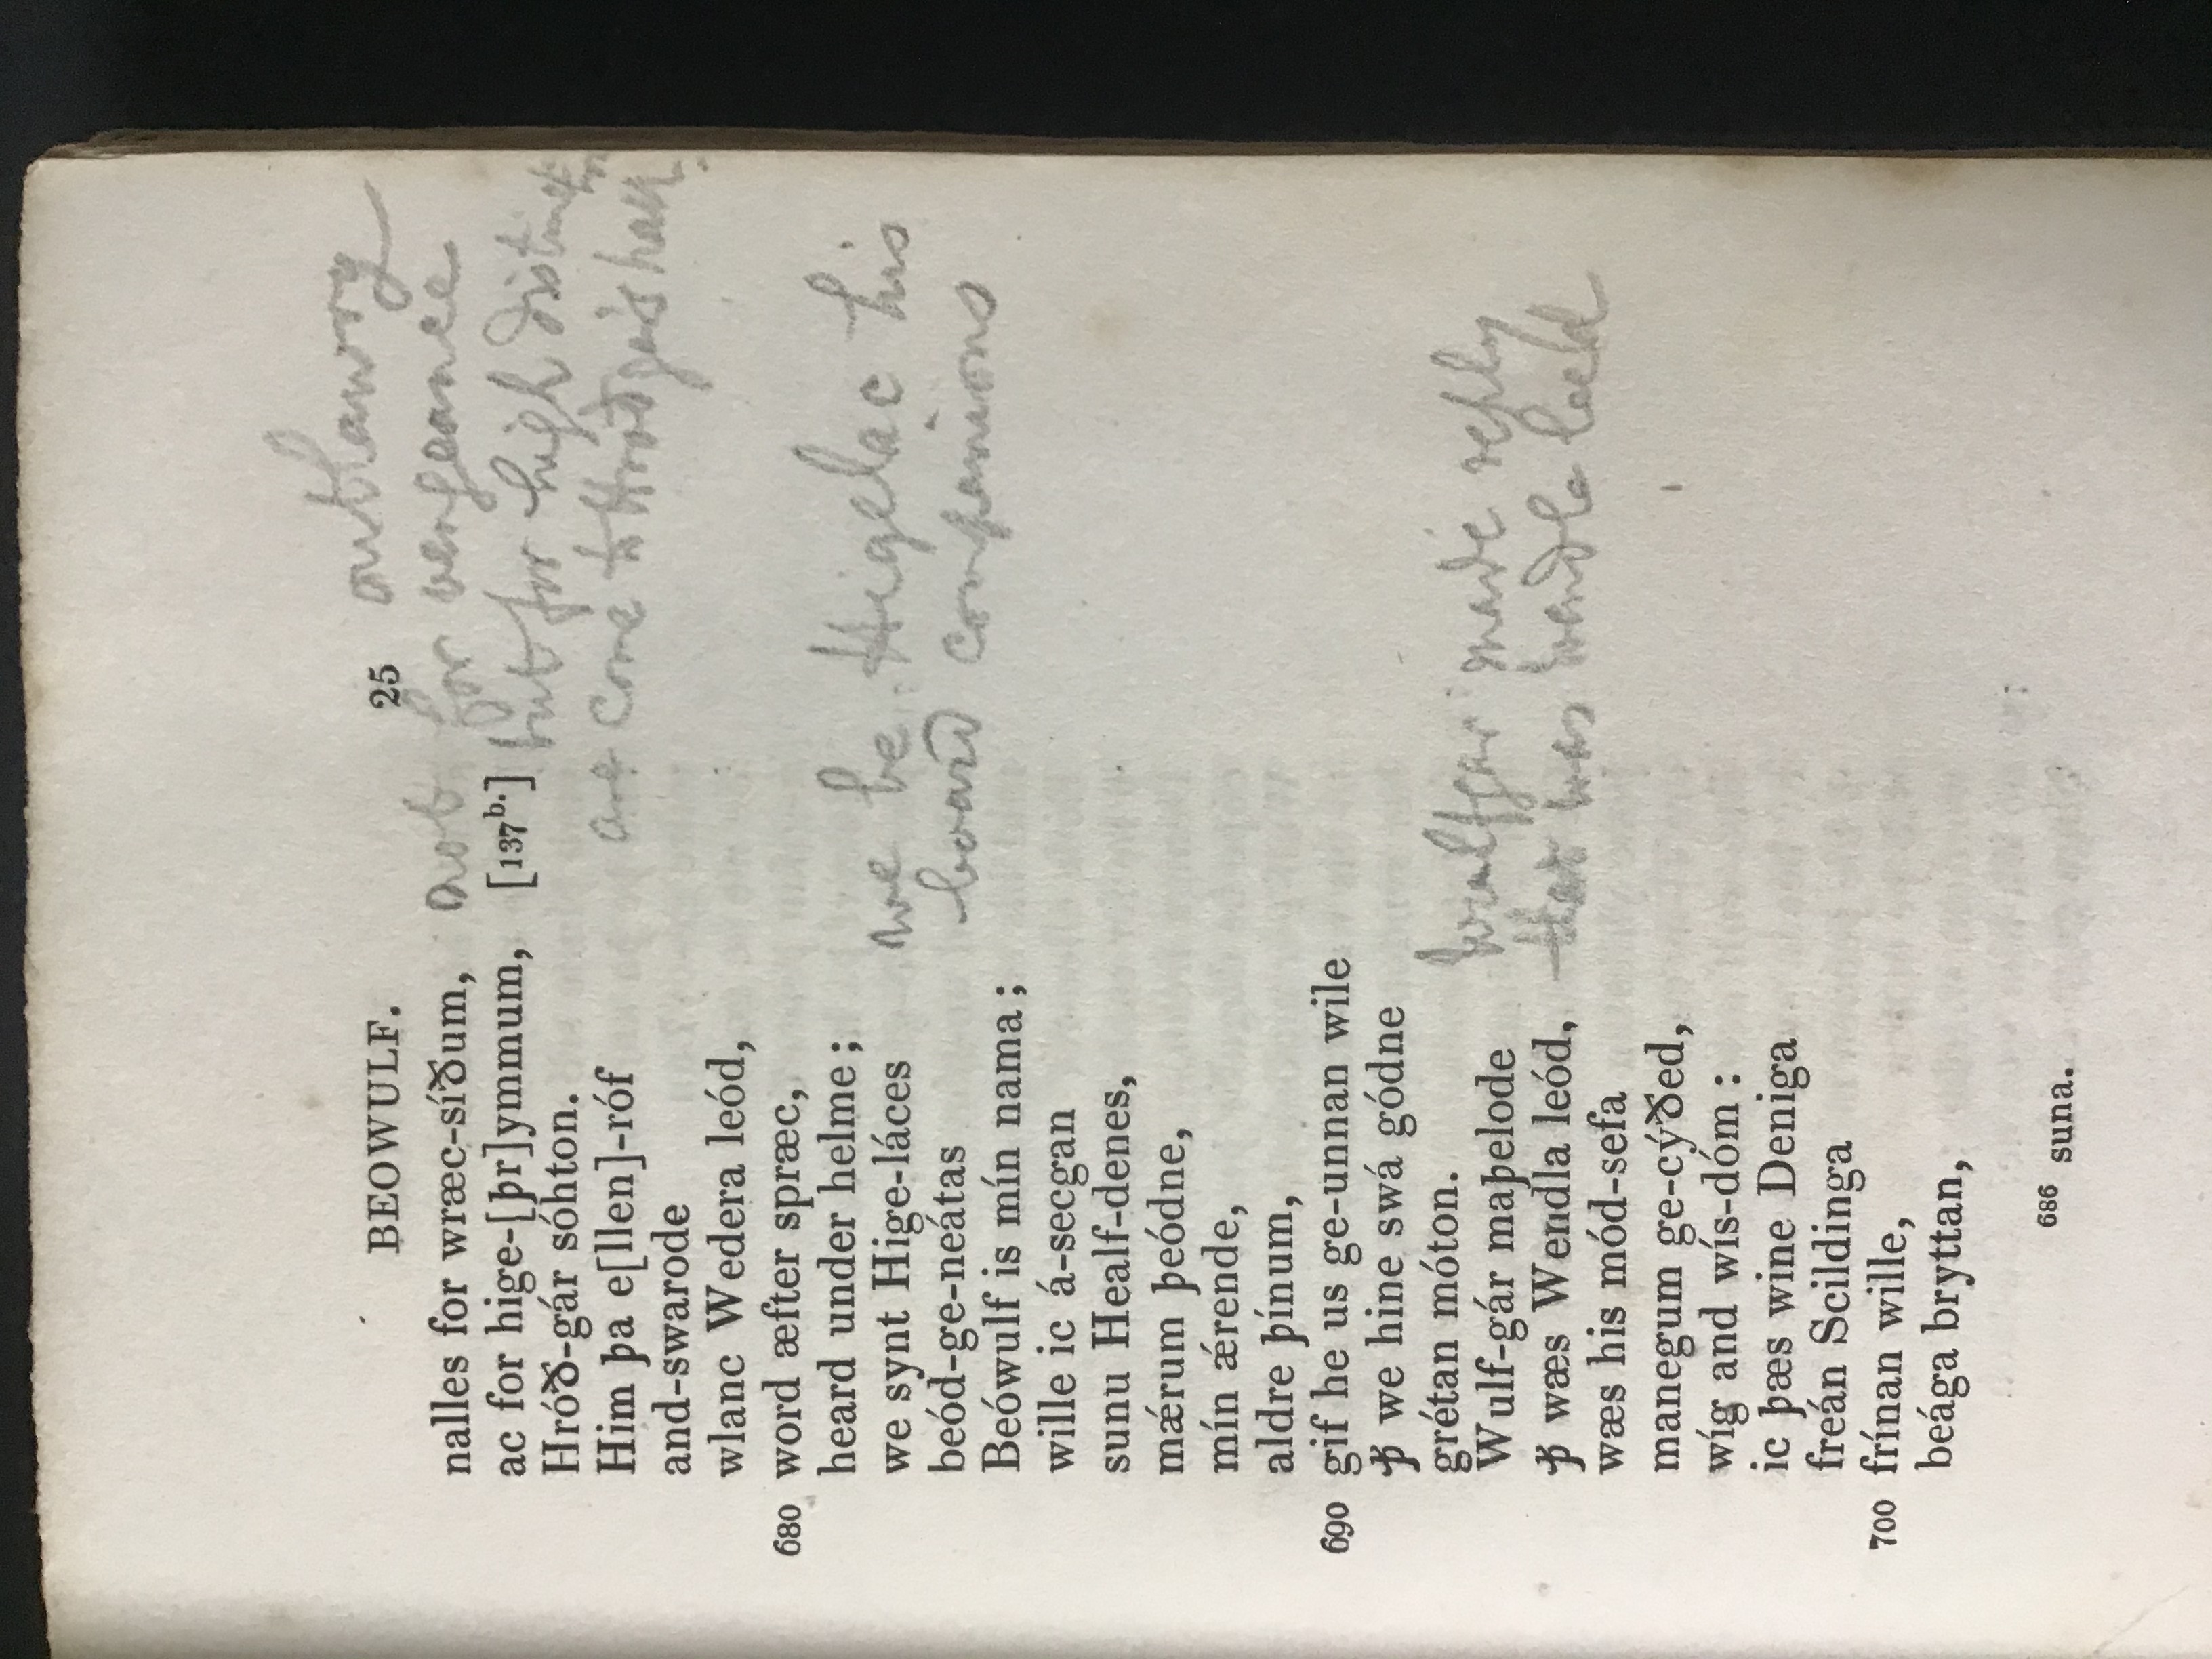 BEOWULF. 25
outlawry
nalles for wræc-síðum, not for vengeance
ac for hige-[þr]ymmum, [137b.] but for high
Hróð-gár sóhton. are come to Hrothgar's hall.
Him þa e[llen]-róf
and-swarode
wlanc Wedera leód,
680 word æfter spræc,
heard under helme;
we synt Hige-láces we be Higelac his
beód-ge-neátas board companions
Beówulf is mín nama;
wille ic á-secgan
sunu Healf-denes,
mǽrum þeódne,
mín ǽrende,
aldre þínum,
690 gif he us ge-unnan wile
ꝥ we hine swá gódne
grétan móton.
Wulf-gár maþelode Wulfgar made reply
ꝥ wæs Wendla leód, that was Wendla
wæs his mód-sefa
manegum ge-cýðed,
wíg and wís-dóm:
ic þæs wine Deniga
freán Scildinga
700 frínan wille,
beága bryttan,
686 suna.